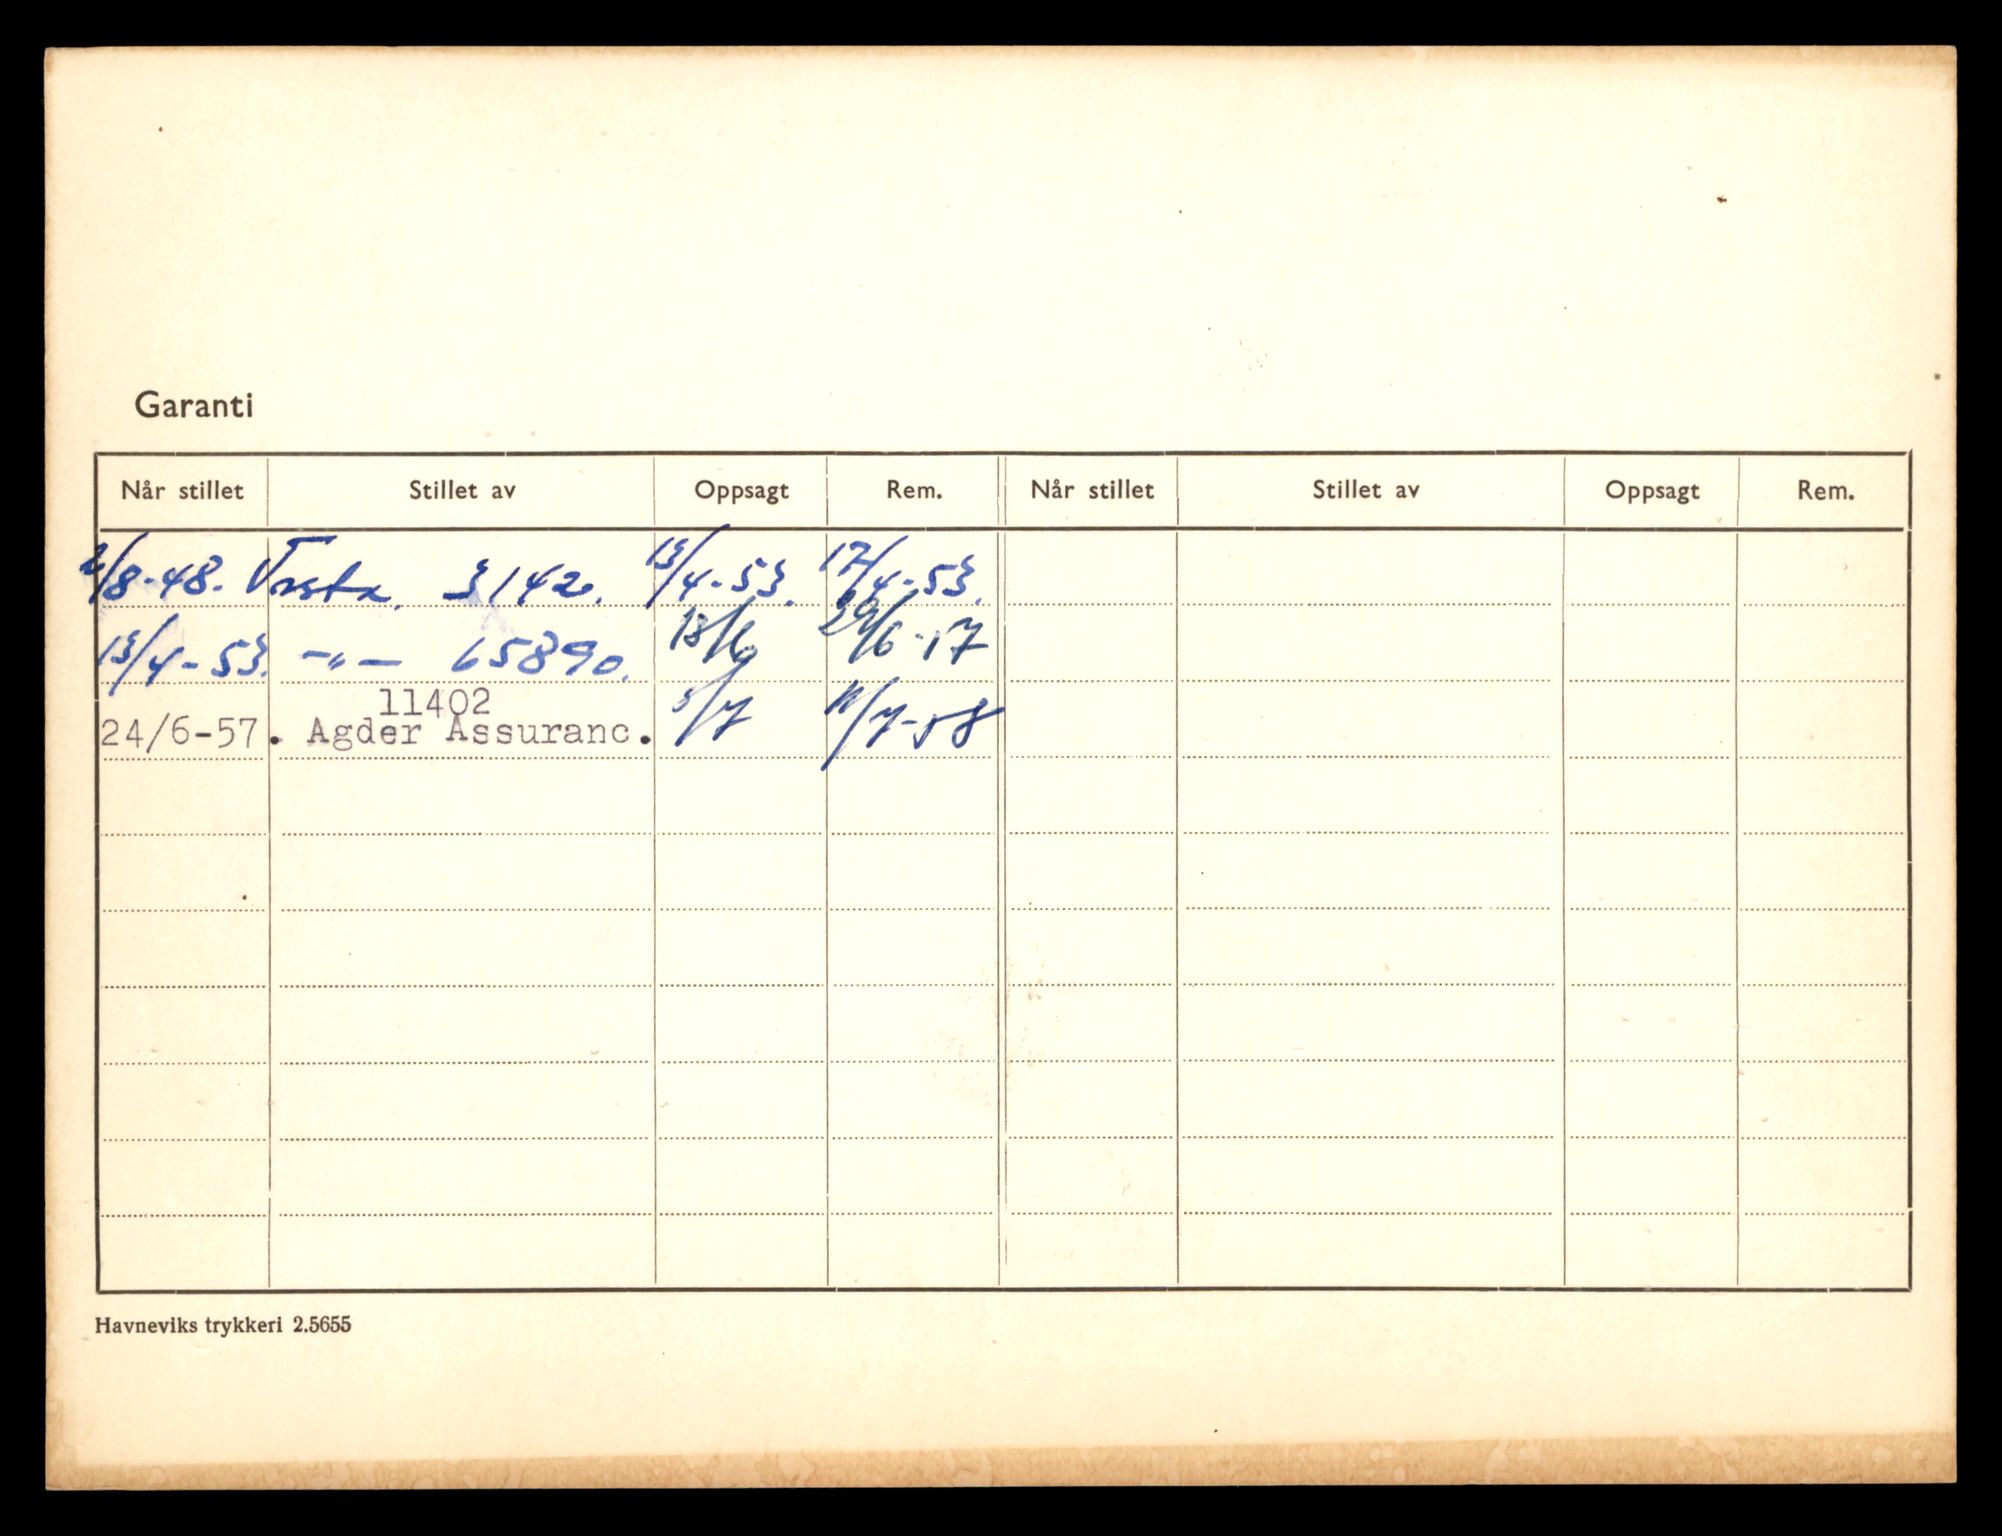 Garanti
Når stillet Stillet av Oppsagt Rem. Når stillet Stillet av Oppsagt Rem.
2/8-48. Vesta. 3142. 13/4-53. 17/4-53.
13/4-53. -"- 65890. 18/6 29/6-57
11402
24/6-57. Agder Assuranc. 5/7 11/7-58
Havneviks trykkeri 2.5655